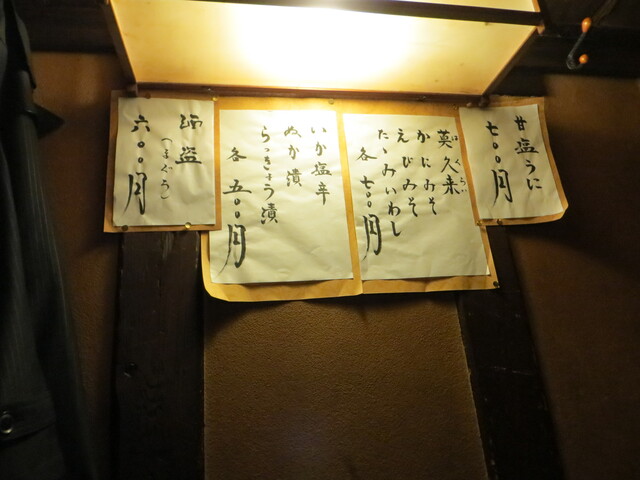 甘塩うに
七〇〇円
莫久来
かにみそ
えびみそ
たゝみいわし
各 七〇〇円
いか塩辛
ぬか漬
らっきょう漬
各 五〇〇円
酒盗
(まぐろ)
六〇〇円